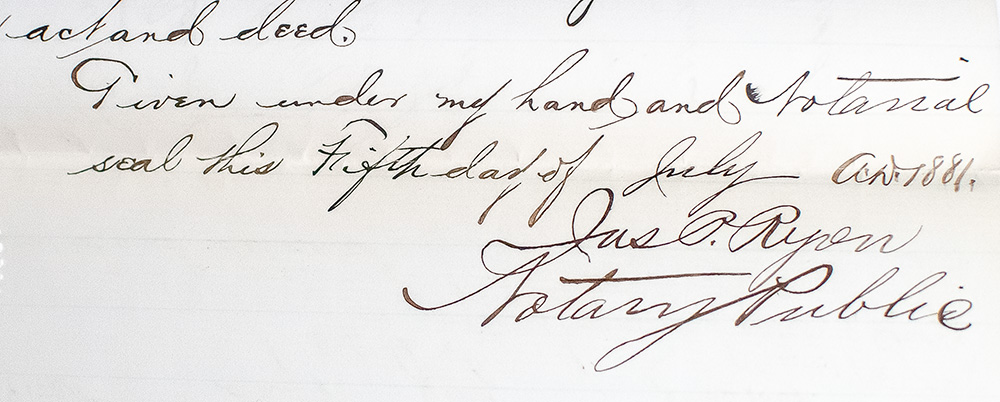 act and deed.
Given under my hand and Notarial
seal this Fifth day of July A.D. 1881.
Jas P. Ryon
Notary Public